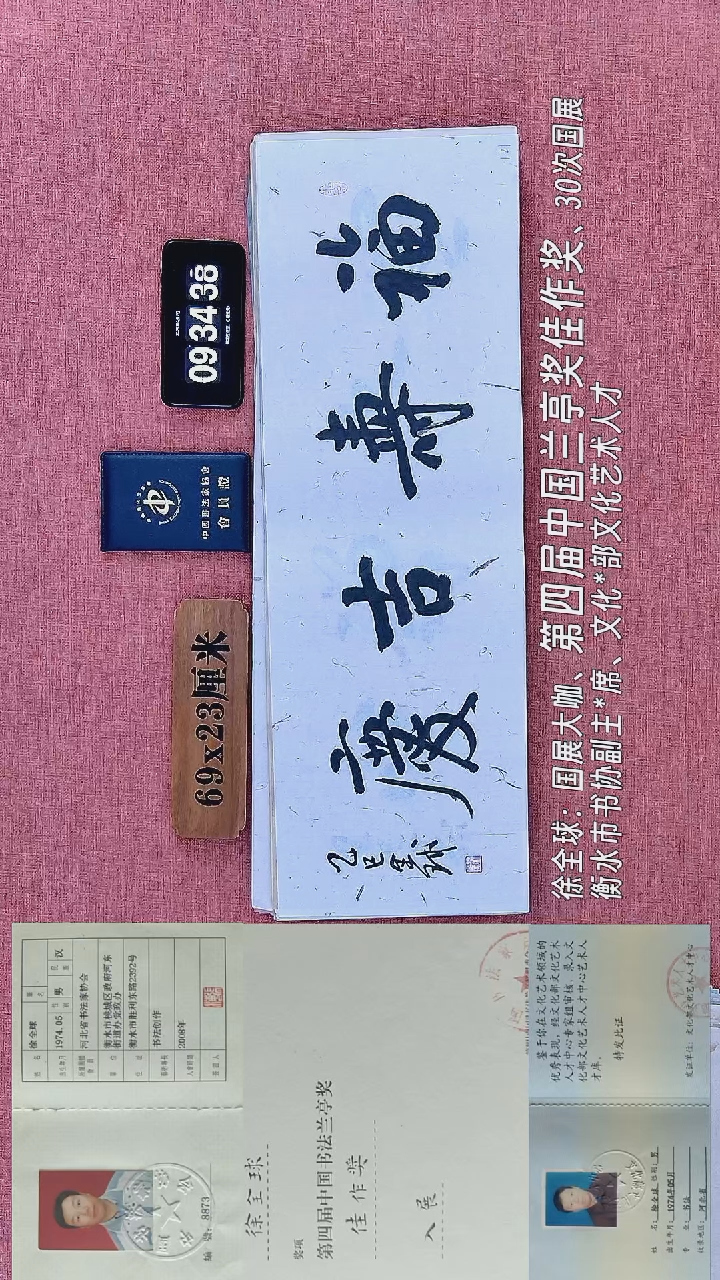 09 34 38
中国书法家协会
會員證
69x23厘米
福寿吉慶
乙巳全球
徐全球：国展大咖、第四届中国兰亭奖佳作奖、30次国展
衡水市书协副主*席、文化*部文化艺术人才
编号: 8873
姓名 徐全球
出生年月 1974.05 男 汉
河北省书法家协会
衡水市桃城区政府河东
街道办党政办
衡水市胜利东路2392号
书法创作
2008年
徐全球
奖项
第四届中国书法兰亭奖
佳作奖
入展
鉴于你在文化艺术领域的
优秀表现，经文化部文化艺术
人才中心专家组审核，录入文
化部文化艺术人才中心艺术人
才库。
特发此证
发证单位：文化部文化艺术人才中心
姓名：徐全球 性别：男
出生年月：1974年05月
专业：书法